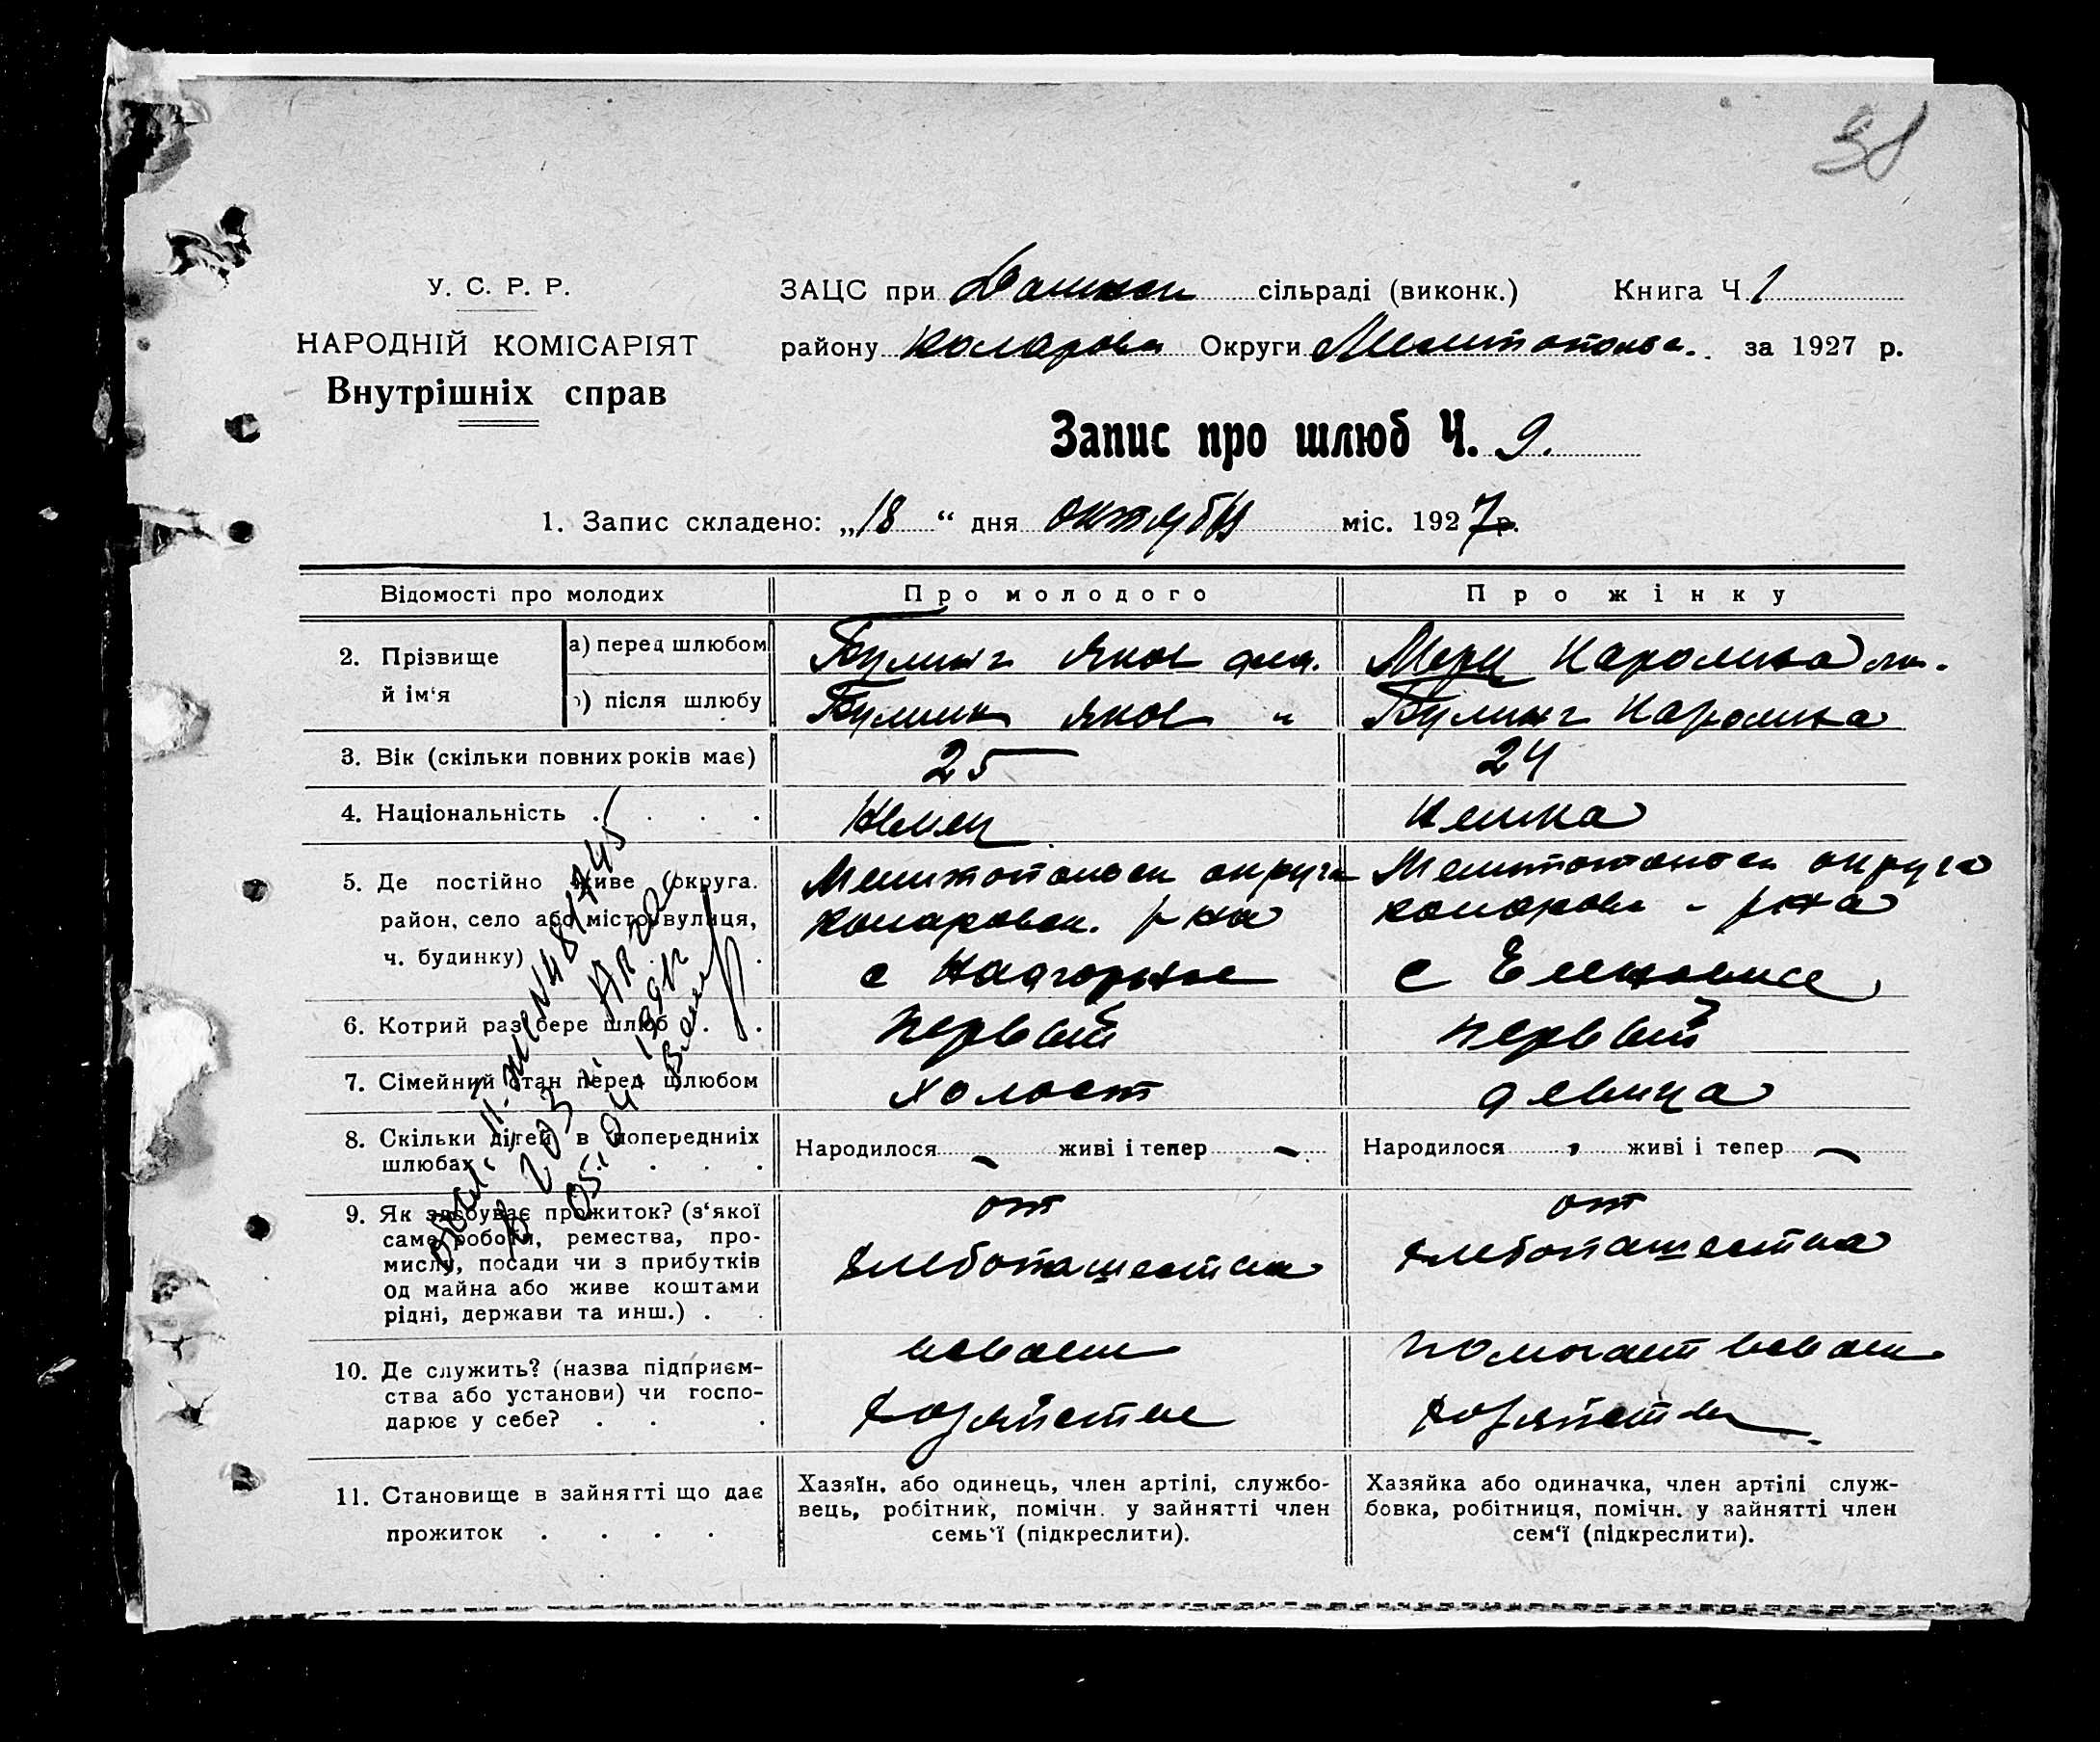 38
У. С. Р. Р.
НАРОДНІЙ КОМІСАРІЯТ
Внутрішніх справ
ЗАЦС при сільраді (виконк.) Книга Ч. 1
району Коларовск Округи Мелитопольс. за 1927 р.
Запис про шлюб Ч. 9.
1. Запис складено: „18“ дня октября міс. 1927 р.
Відомості про молодих
Про молодого
Про жінку
2. Прізвище й ім‘я
а) перед шлюбом
Яков
Каролина
) після шлюбу
Яков "
Каролина
3. Вік (скільки повних років має)
25
24
4. Національність . . . .
Немец
Немка
5. Де постійно живе (округа.
район, село або місто, вулиця,
ч. будинку)
Мелитопольск округа
Коларовск. р-на
с Надгорное
Мелитопольск округа
Коларовск - р-на
с
6. Котрий раз бере шлюб . .
первый
первый
7. Сімейний стан перед шлюбом
холост
девица
8. Скільки дітей в попередниіх
шлюбах . . . .
Народилося - живі і тепер -
Народилося - живі і тепер -
9. Як здобуває прожиток? (з‘якої
саме роботи, ремества, про-
мислу, посади чи з прибутків
од майна або живе коштами
рідні, держави та инш.) . .
от
хлебопашества
от
хлебопашества
10. Де служить? (назва підприєм-
ства або установи) чи госпо-
дарює у себе? . . .
в своем
хозяйстве
помогает в своем
хозяйстве
11. Становище в зайнятті що дає
прожиток . . . .
Хазяїн, або одинець, член артілі, службо-
вець, робітник, помічн. у зайнятті член
семь‘ї (підкреслити).
Хазяйка або одиначка, член артілі служ-
бовка, робітниця, помічн. у зайнятті член
сем‘ї (підкреслити).